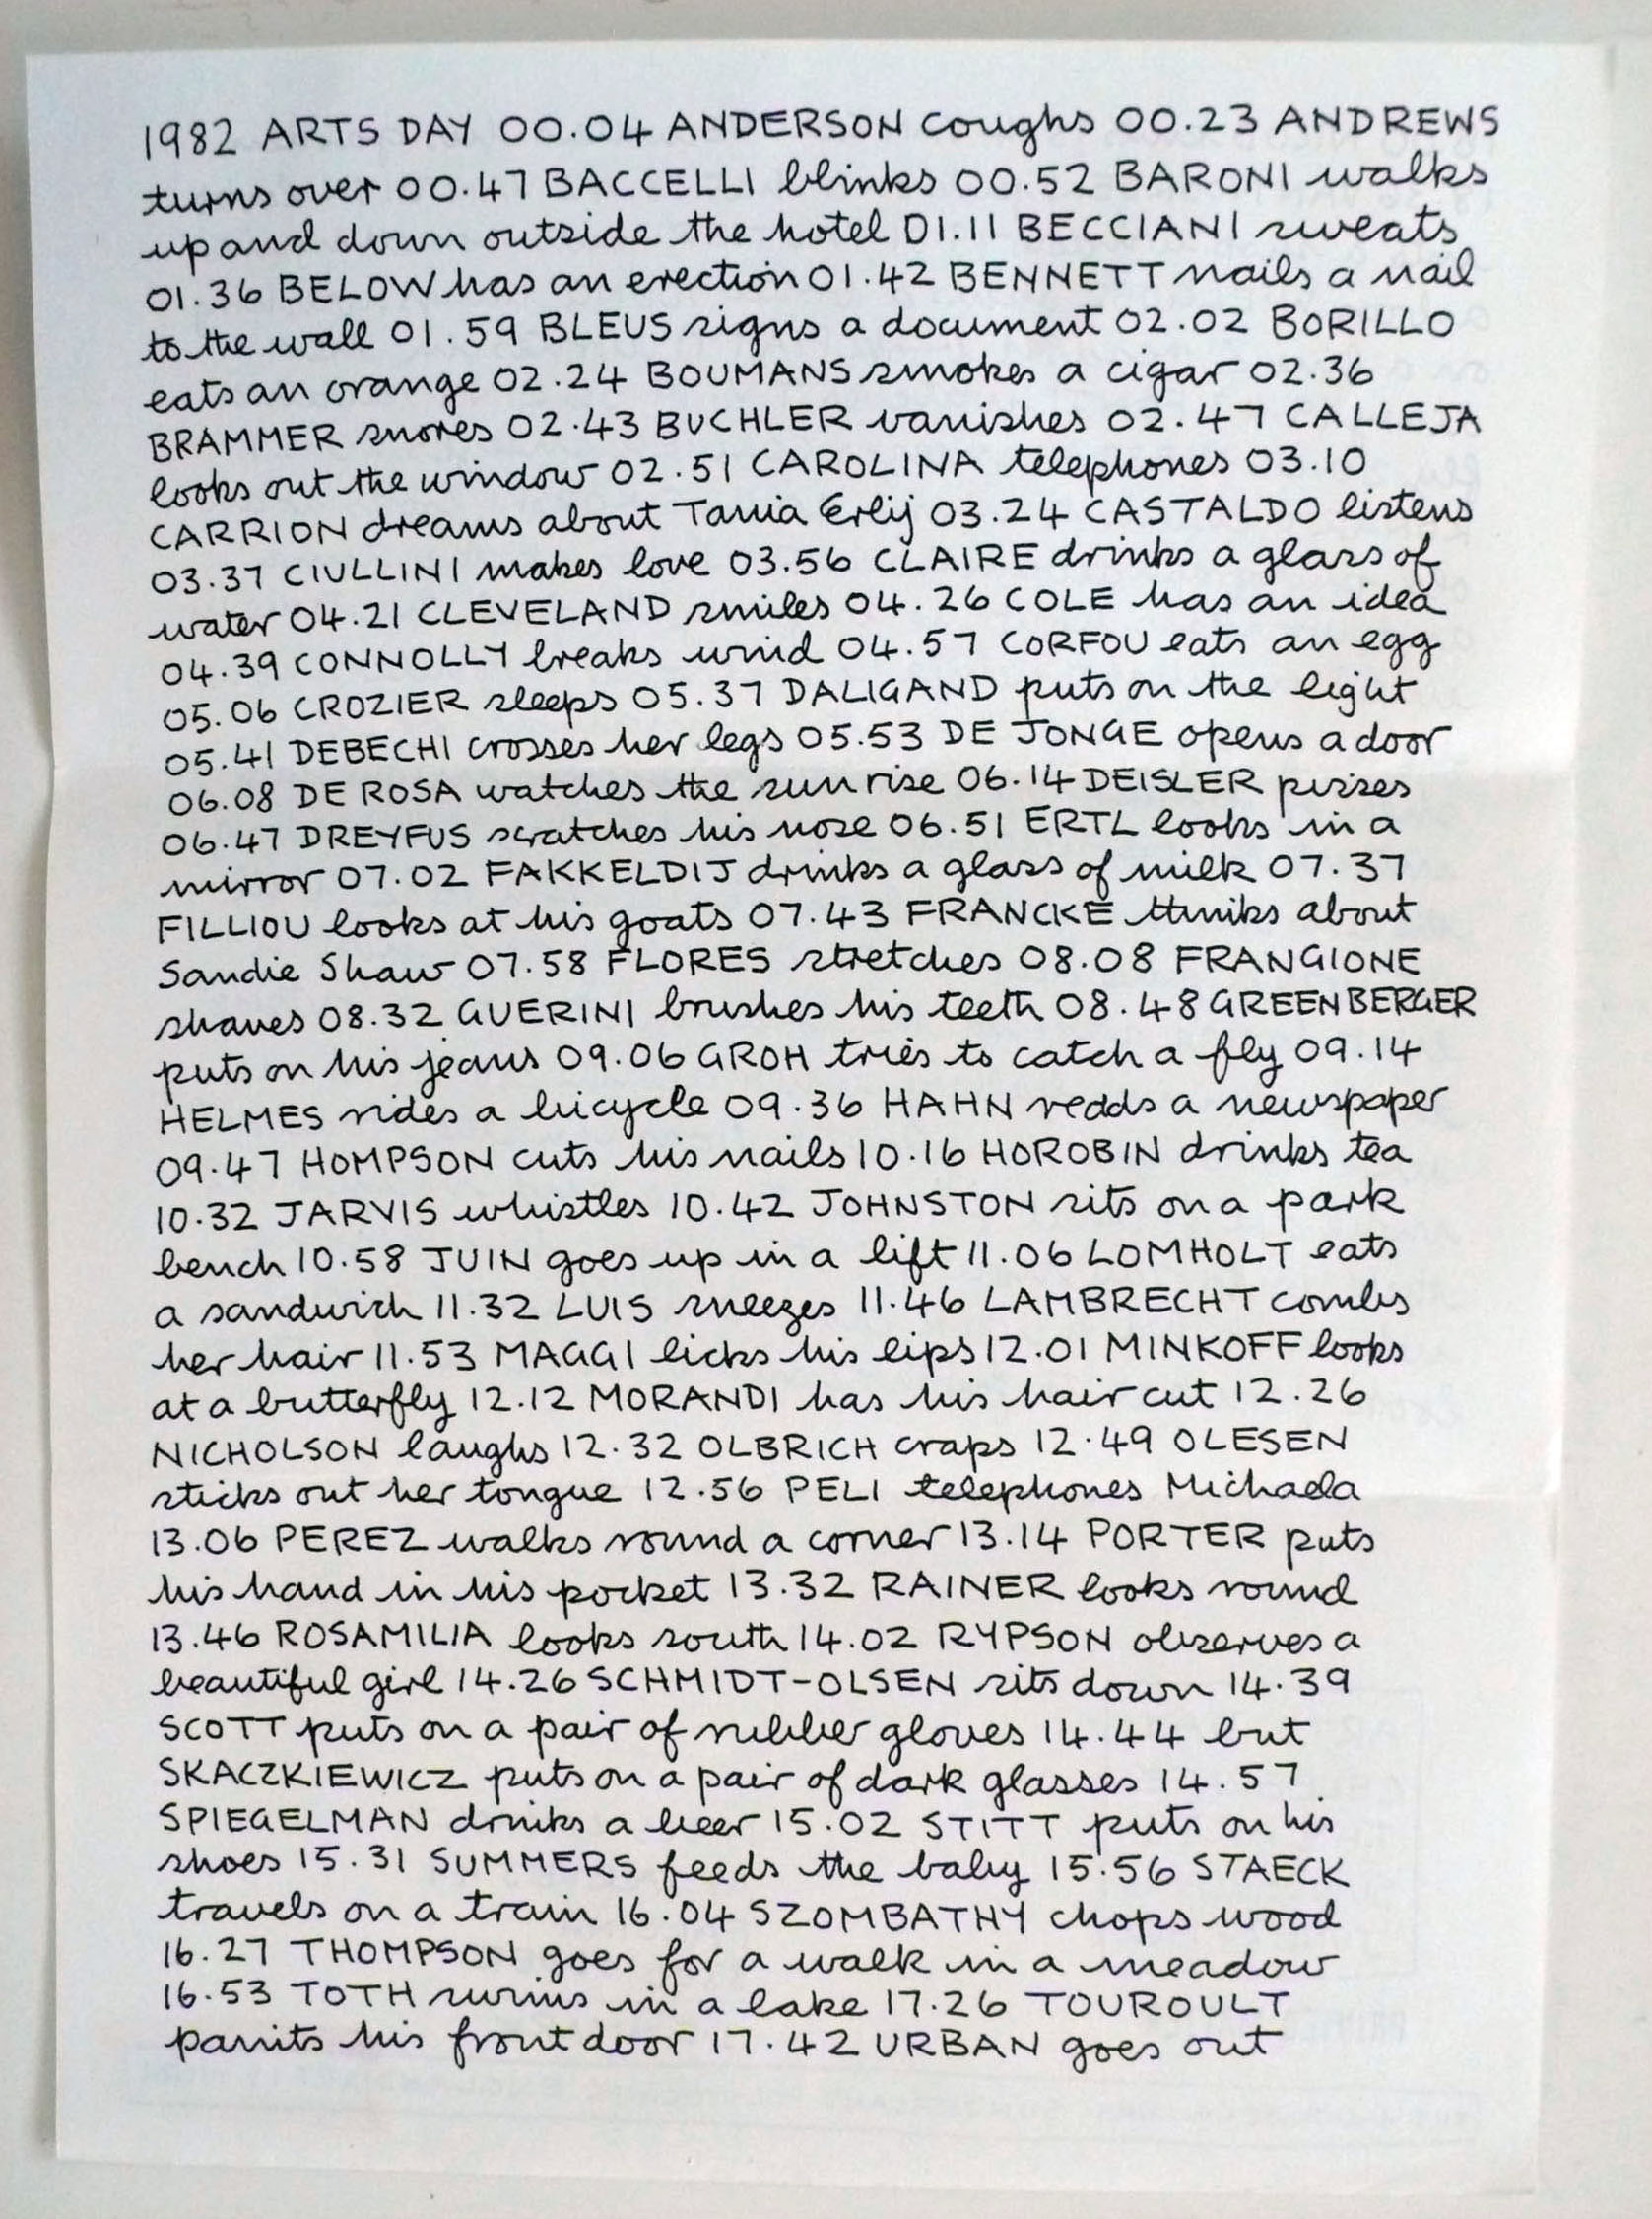 1982 ARTS DAY 00.04 ANDERSON coughs 00.23 ANDREWS
turns over 00.47 BACCELLI blinks 00.52 BARONI walks
up and down outside the hotel 01.11 BECCIANI sweats
01.36 BELOW has an erection 01.42 BENNETT nails a nail
to the wall 01.59 BLEUS signs a document 02.02 BORILLO
eats an orange 02.24 BOUMANS smokes a cigar 02.36
BRAMMER snores 02.43 BUCHLER vanishes 02.47 CALLEJA
looks out the window 02.51 CAROLINA telephones 03.10
CARRION dreams about Tania Erlij 03.24 CASTALDO listens
03.37 CIULLINI makes love 03.56 CLAIRE drinks a glass of
water 04.21 CLEVELAND smiles 04.26 COLE has an idea
04.39 CONNOLLY breaks wind 04.57 CORFOU eats an egg
05.06 CROZIER sleeps 05.37 DALIGAND puts on the light
05.41 DEBECHI crosses her legs 05.53 DE JONGE opens a door
06.08 DE ROSA watches the sun rise 06.14 DEISLER pisses
06.47 DREYFUS scratches his nose 06.51 ERTL looks in a
mirror 07.02 FAKKELDIJ drinks a glass of milk 07.37
FILLIOU looks at his goats 07.43 FRANCKE thinks about
Sandie Shaw 07.58 FLORES stretches 08.08 FRANGIONE
shaves 08.32 GUERINI brushes his teeth 08.48 GREENBERGER
puts on his jeans 09.06 GROH tries to catch a fly 09.14
HELMES rides a bicycle 09.36 HAHN redds a newspaper
09.47 HOMPSON cuts his nails 10.16 HOROBIN drinks tea
10.32 JARVIS whistles 10.42 JOHNSTON sits on a park
bench 10.58 JUIN goes up in a lift 11.06 LOMHOLT eats
a sandwich 11.32 LUIS sneezes 11.46 LAMBRECHT combs
her hair 11.53 MAGGI licks his lips 12.01 MINKOFF looks
at a butterfly 12.12 MORANDI has his hair cut 12.26
NICHOLSON laughs 12.32 OLBRICH craps 12.49 OLESEN
sticks out her tongue 12.56 PELI telephones Michaela
13.06 PEREZ walks round a corner 13.14 PORTER puts
his hand in his pocket 13.32 RAINER looks round
13.46 ROSAMILIA looks south 14.02 RYPSON observes a
beautiful girl 14.26 SCHMIDT-OLSEN sits down 14.39
SCOTT puts on a pair of rubber gloves 14.44 but
SKACZKIEWICZ puts on a pair of dark glasses 14.57
SPIEGELMAN drinks a beer 15.02 STITT puts on his
shoes 15.31 SUMMERS feeds the baby 15.56 STAECK
travels on a train 16.04 SZOMBATHY chops wood
16.27 THOMPSON goes for a walk in a meadow
16.53 TOTH swims in a lake 17.26 TOUROULT
paints his front door 17.42 URBAN goes out